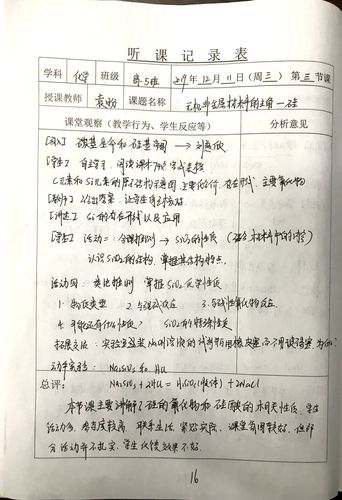 听课记录表
学科 化学 班级 高5班 2019年12月11日(周三)第三节课
授课教师 袁 课题名称 无机非金属材料的主角—硅
课堂观察(教学行为、学生反应等) 分析意见
[引入] 碳基生命和硅基 →
[学生] 自主学习,阅读课本 完成表格
C元素和Si元素的原子结构示意图,主要化合价,存在形式,主要氧化物
[教师] 给出答案,让学生自主核对。
[讲述] Si的存在形式以及应用
[学生] 活动一:合理推测 → SiO₂的性质
认识SiO₂的结构,掌握其结构特点。
活动二:类比推测 掌握SiO₂化学性质
1. 物质类型 2. 与强碱反应 3. 与碱性氧化物反应
4. 可能还有什么性质? SiO₂的特殊性质
拓展交流:实验室盛装NaOH溶液的试剂瓶用橡皮塞而不用玻璃塞,为什么?
动手实验:Na₂SiO₃ 和 HCl
总评: Na₂SiO₃ + 2HCl = H₂SiO₃(胶体) + 2NaCl
本节课主要讲解了硅的氧化物和硅酸的相关性质,学生
活动多,参与度较高,联系生活,紧贴实际,课堂氛围较好,但部
分活动并不扎实,学生反馈效果不好。
16